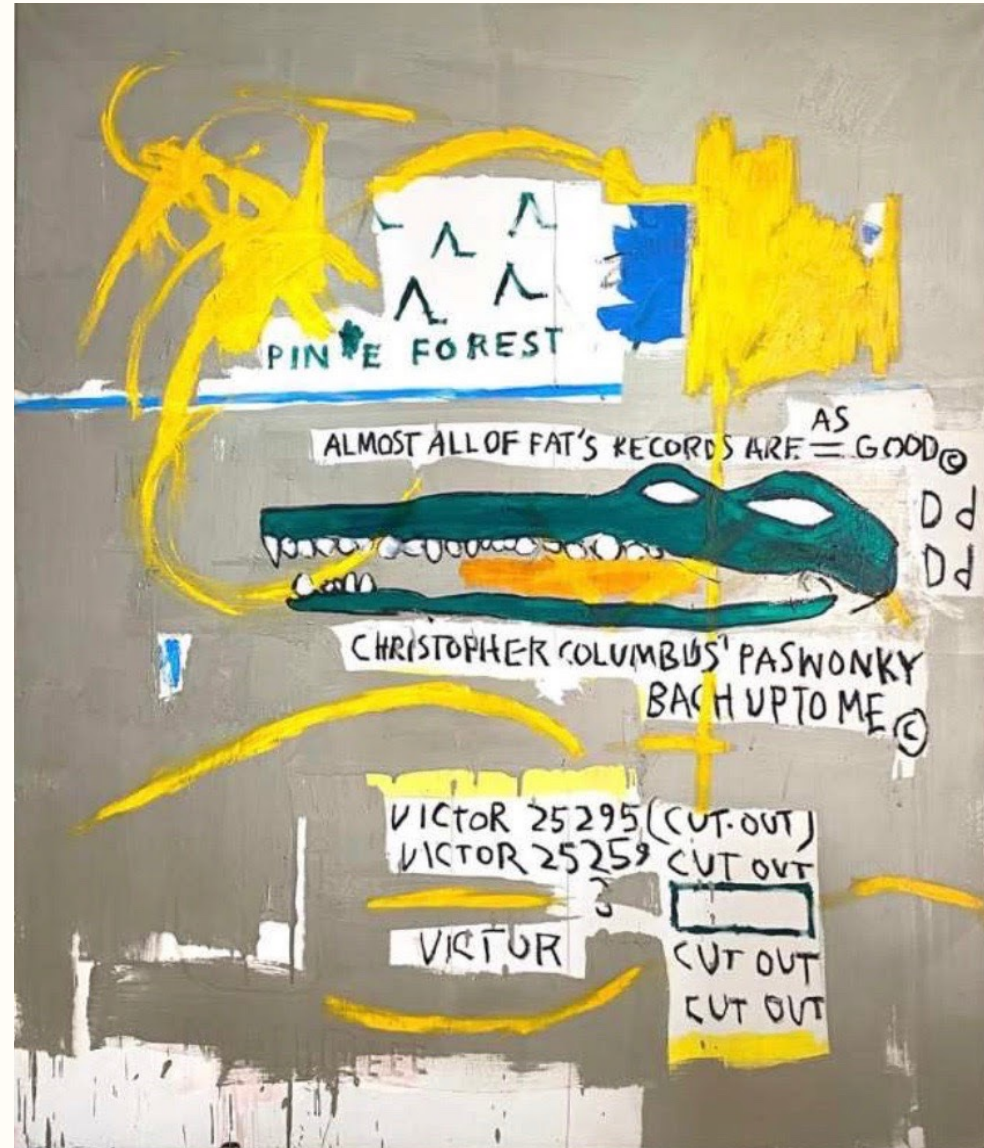 PIN E FOREST
AS
ALMOST ALL OF FAT'S RECORDS ARE = GOOD©
D d
D d
CHRISTOPHER COLUMBUS' PASWONKY
BACH UPTO ME ©
VICTOR 25295 (CUT-OUT)
VICTOR 25259 CUT OUT
VICTOR
CUT OUT
CUT OUT